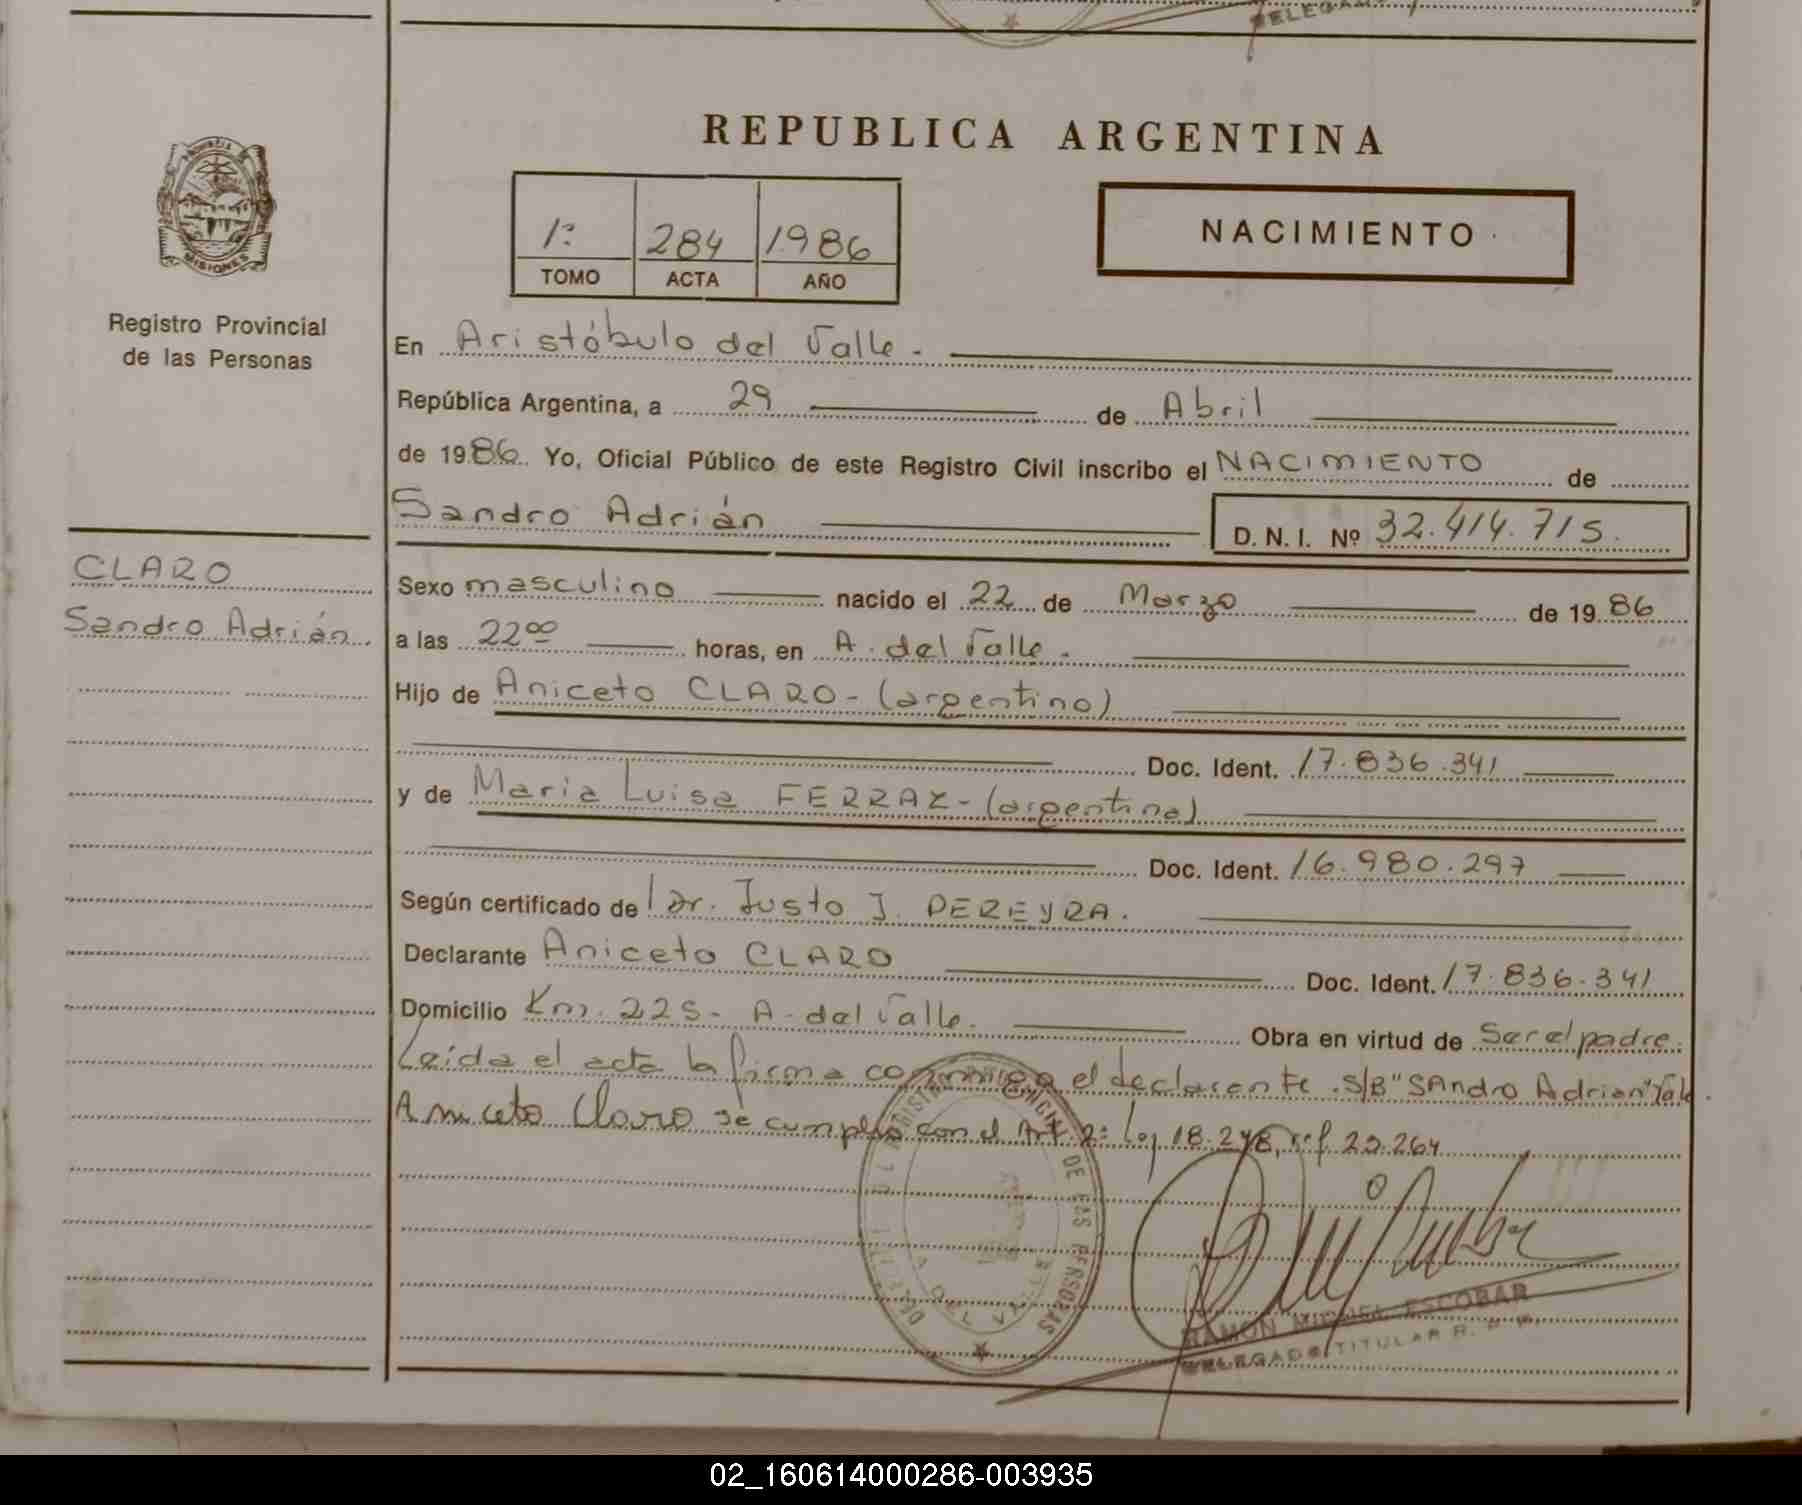 DELEGADO
REPUBLICA ARGENTINA
PROVINCIA DE
MISIONES
Registro Provincial
de las Personas
1º 284 1986
TOMO ACTA AÑO
NACIMIENTO
En Aristóbulo del Valle.
República Argentina, a 29 de Abril
de 1986. Yo, Oficial Público de este Registro Civil inscribo el NACIMIENTO de
Sandro Adrián D. N. I. Nº 32.414.715.
CLARO
Sandro Adrián.
Sexo masculino nacido el 22 de Marzo de 1986
a las 22 00 horas, en A. del Valle.
Hijo de Aniceto CLARO - (argentino)
Doc. Ident. 17.836.341
y de Maria Luisa FERRAZ - (argentina)
Doc. Ident. 16.980.297
Según certificado de Dr. Justo J. PEREYRA.
Declarante Aniceto CLARO Doc. Ident. 17.836.341
Domicilio Km. 225 - A. del Valle. Obra en virtud de Ser el padre.
Leída el acta la firma conmigo el declarante. S/B "SAndro Adrian" Vale.
Aniceto Claro se cumplio con el Art. 2º Ley 18.248, ref 23.264
DE LAS PERSONAS
RAMON MIGUEL ESCOBAR
DELEGADO TITULAR R. P. P.
02_160614000286-003935